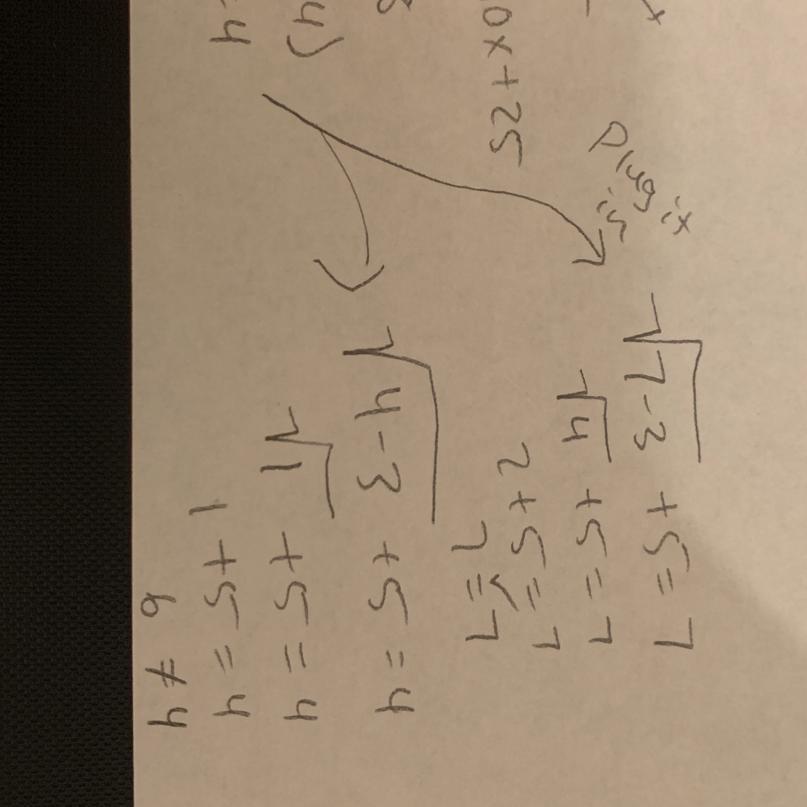 Plug it
in
√7-3 + 5 = 7
√4 + 5 = 7
2 + 5 = 7
7 = 7
0x + 25
√4-3 + 5 = 4
√1 + 5 = 4
1 + 5 = 4
6 ≠ 4
4)
4